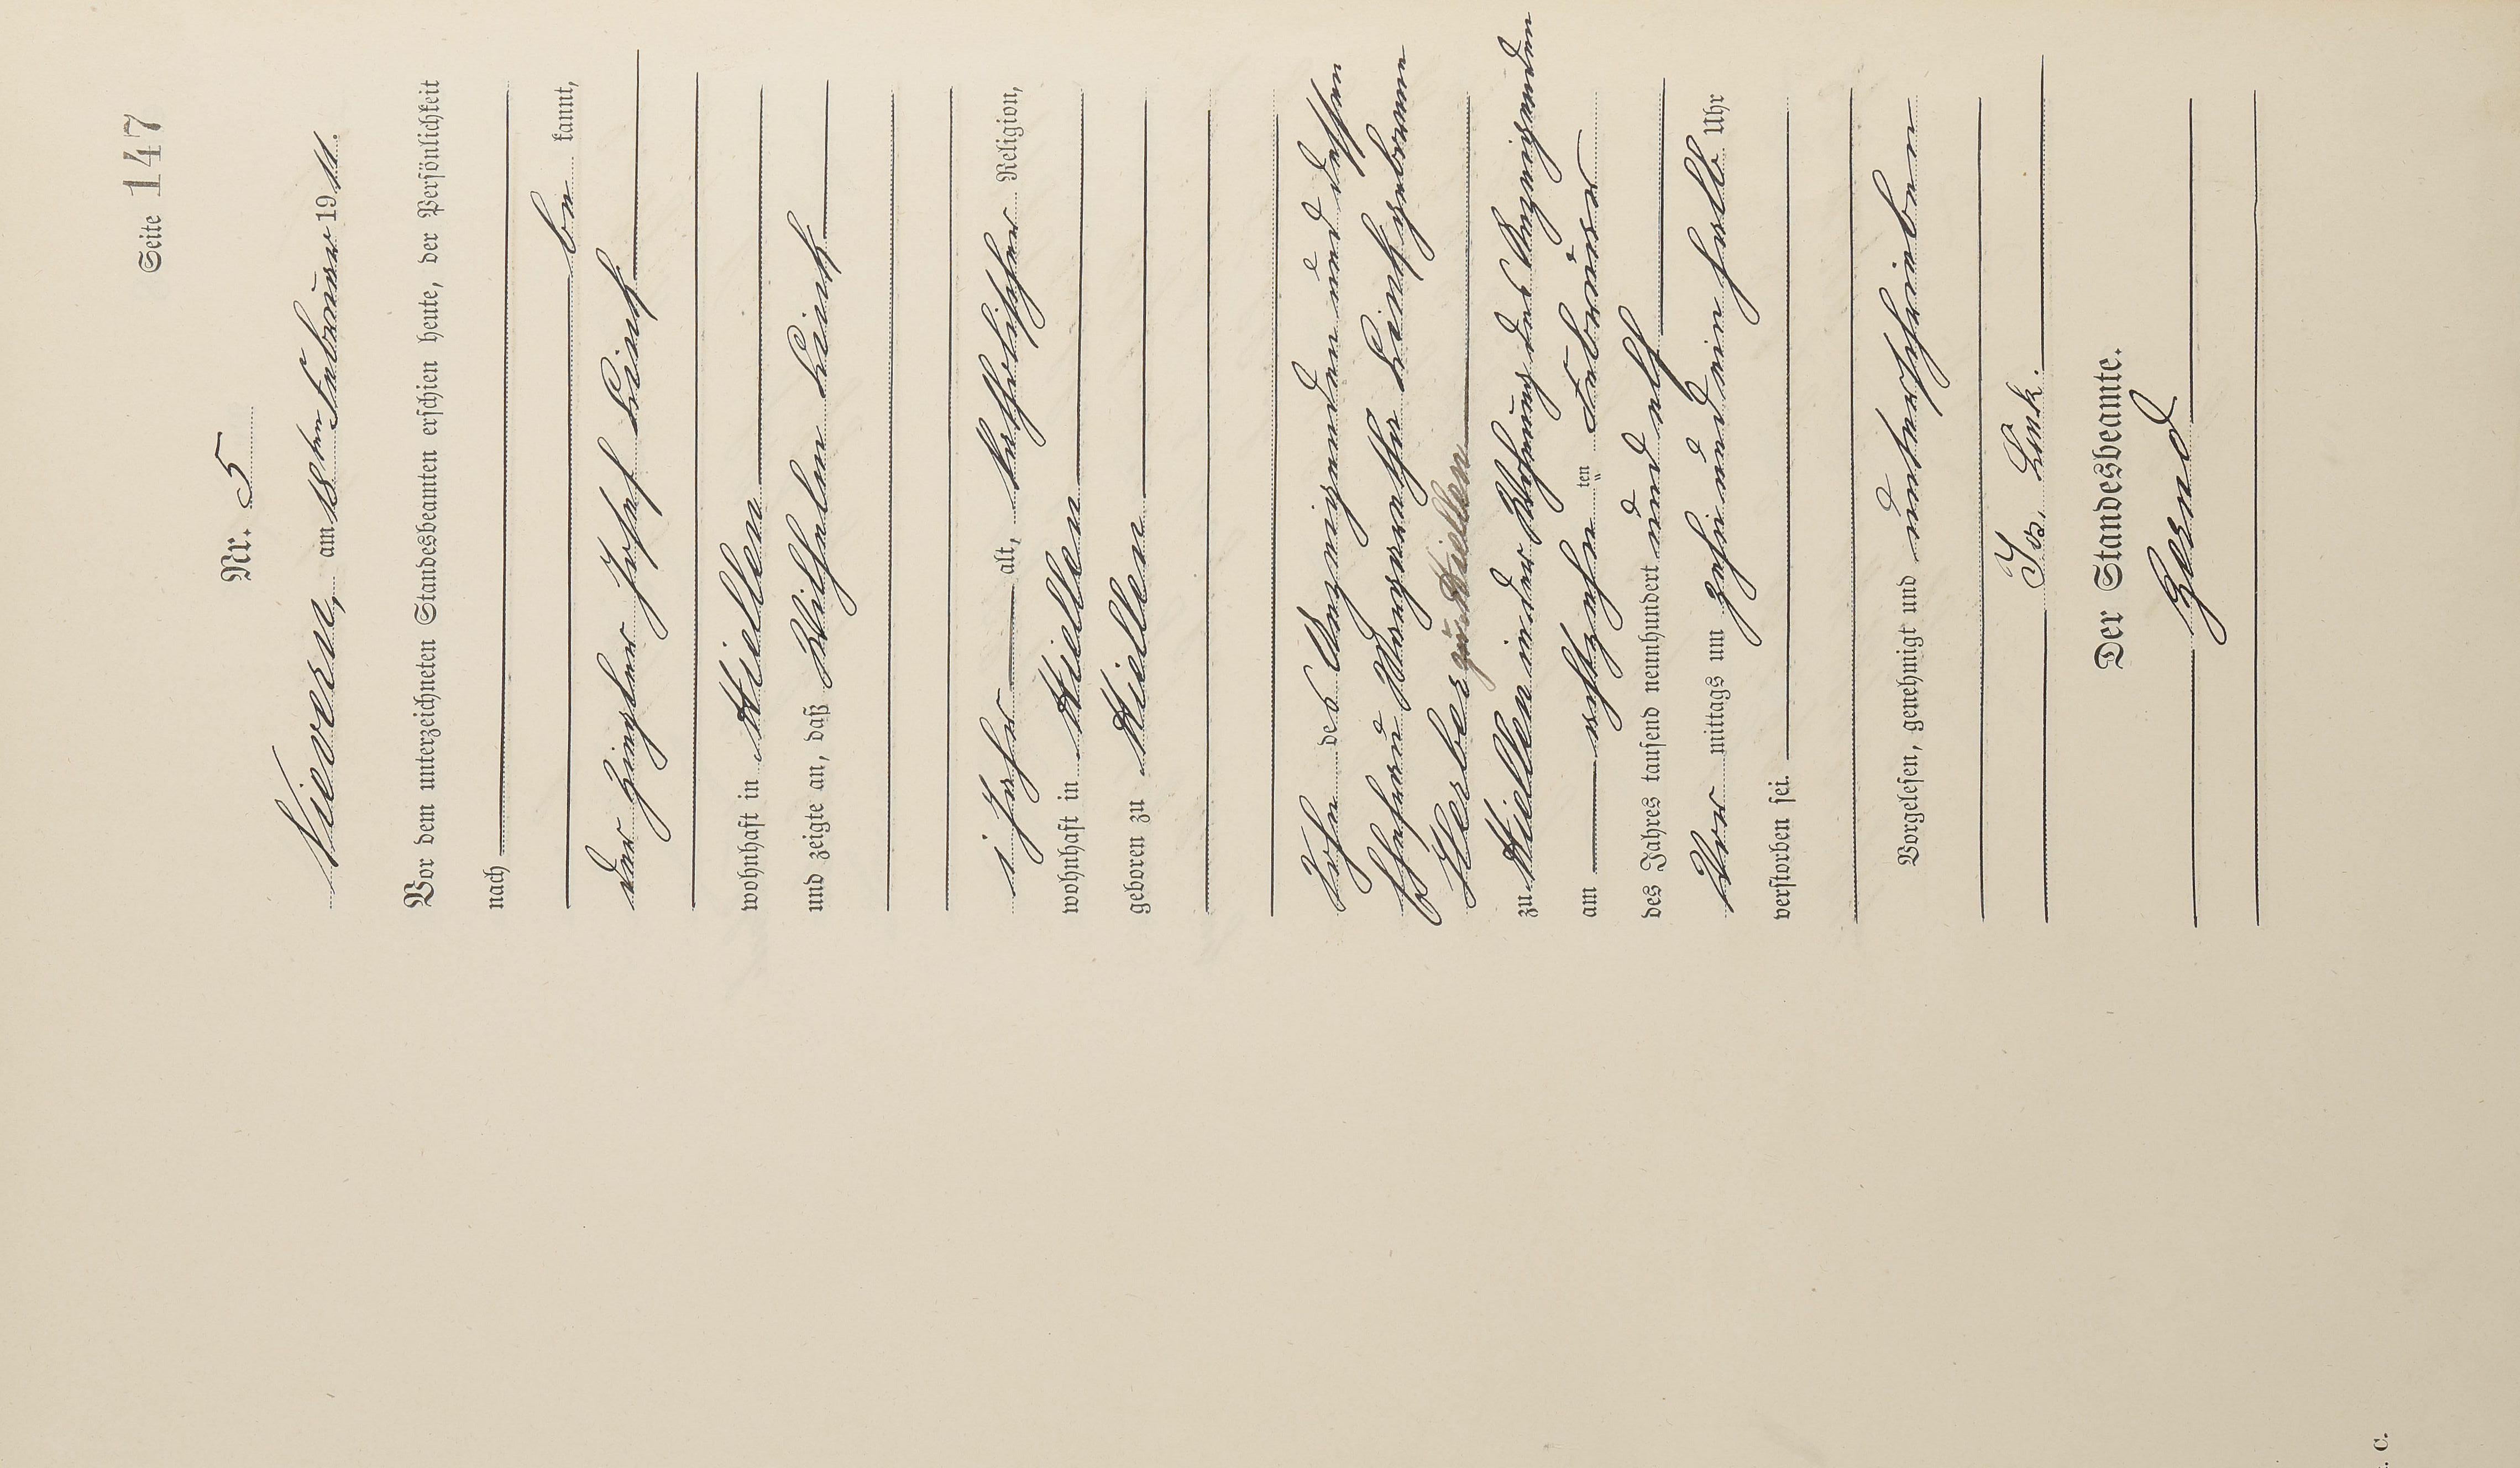 Seite 147
Nr. 5
Nievern, am 18ten Februar 1911.
Vor dem unterzeichneten Standesbeamten erschien heute, der Persönlichkeit
nach
be kannt,
der Josef Linck
wohnhaft in Miellen
und zeigte an, daß Wilhelm Linck
alt, katholischer Religion,
wohnhaft in Miellen
geboren zu Miellen
Sohn des Anzeigenden und dessen
Ehefrau Margaretha Linck geborenen
zu Miellen
zu Miellen in der Wohnung des Anzeigenden
am achtzehnten Februar
des Jahres tausend neunhundert und elf
Vor mittags um zehn und ein halb Uhr
verstorben sei.
Vorgelesen, genehmigt und unterschrieben
Jos. Link.
Der Standesbeamte.
C.